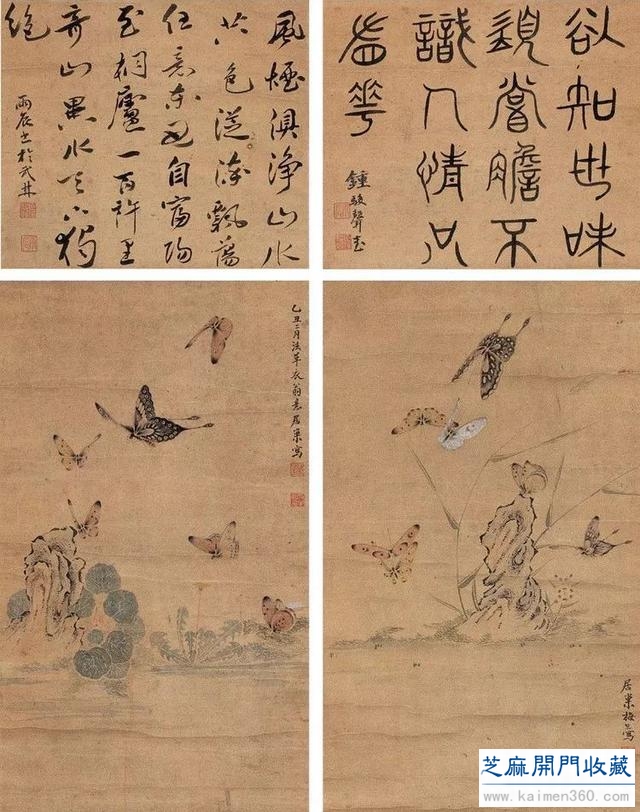 欲知世味
須嘗膽不
識人情只
看花
鍾駿聲書
風煙俱淨山水
共色從流飄蕩
任意東西自富陽
至桐廬一百許里
奇山異水天下獨
絕
丙辰書於武林
居巢梅生寫
乙丑二月法草衣翁意居巢寫
芝麻開門收藏
www.kaimen360.com